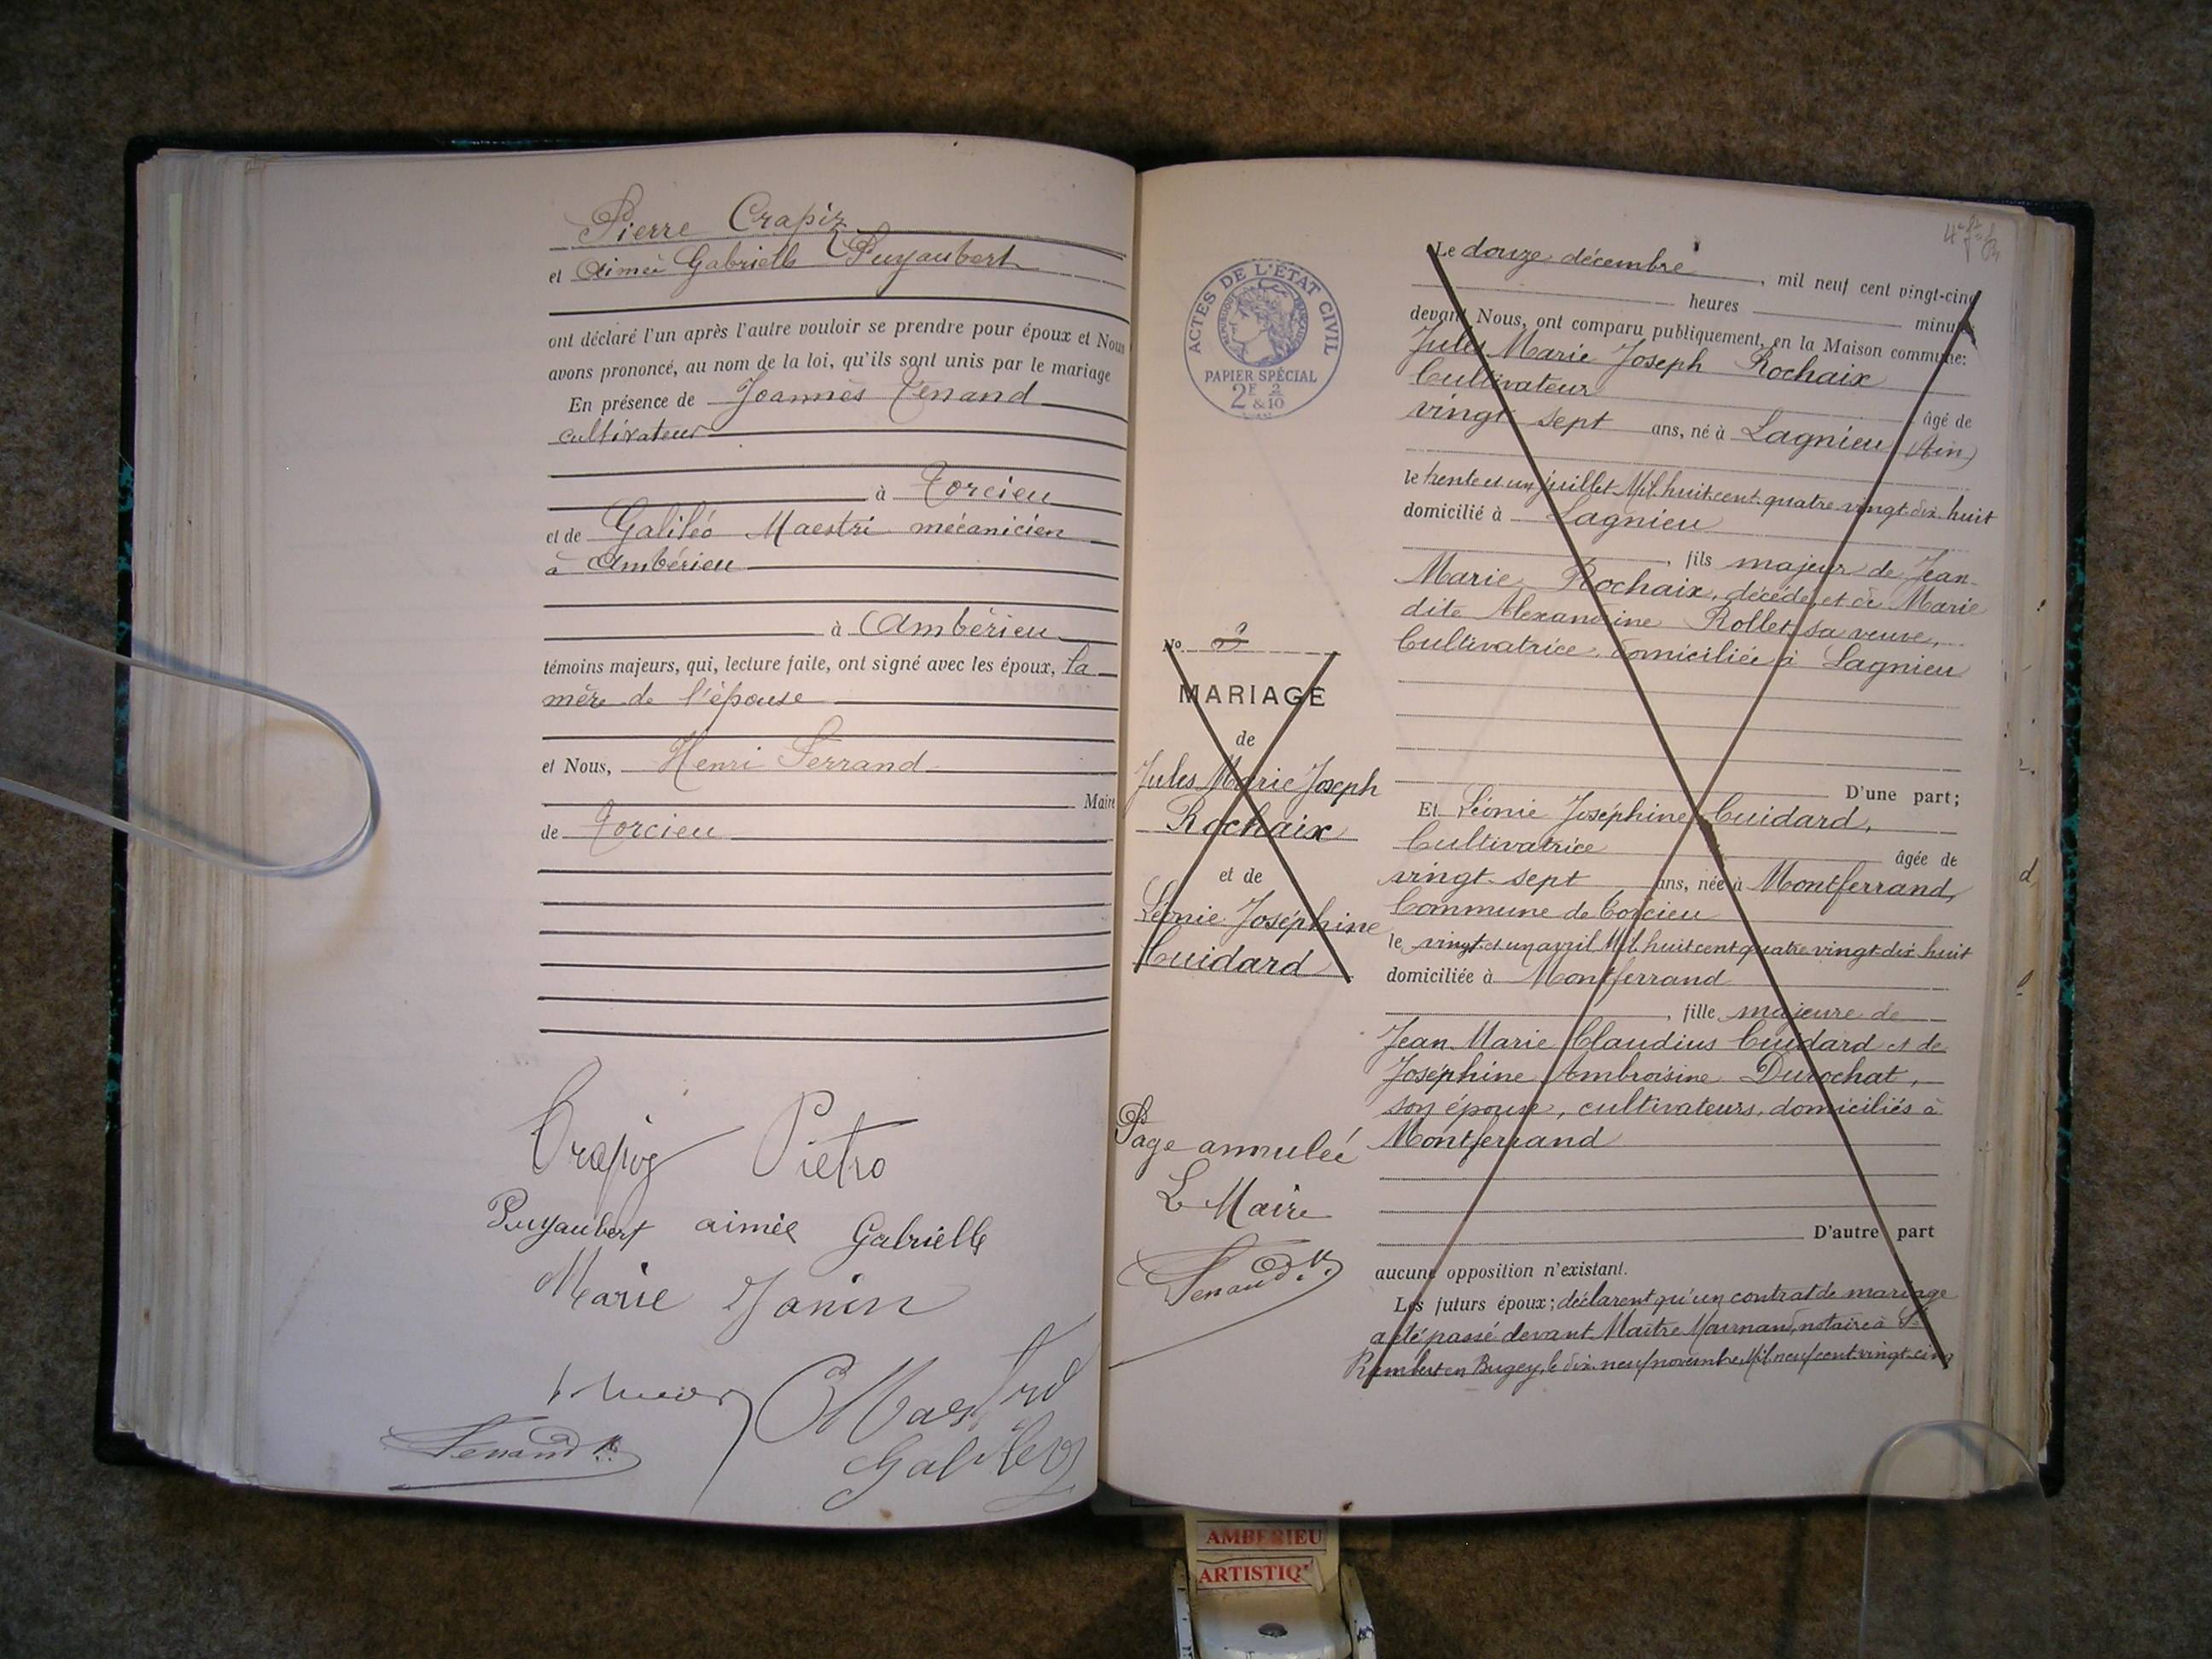 Pierre Crapiz
et Aimée Gabrielle Puyaubert
ont déclaré l'un après l'autre vouloir se prendre pour époux et Nous
avons prononcé, au nom de la loi, qu'ils sont unis par le mariage
En présence de Joannès Tenand
cultivateur
à Torcieu
et de Galiléo Maestri mécanicien
à Ambérieu
à Ambérieu
témoins majeurs, qui, lecture faite, ont signé avec les époux, la
mère de l'épouse
et Nous, Henri Ferrand
Maire
de Torcieu
Crapiz Pietro
Puyaubert aimée Gabrielle
Marie Janin
Maestri
Galileo
ACTES DE L'ÉTAT CIVIL
PAPIER SPÉCIAL
2F 2
& 10
No
MARIAGE
de
Jules Marie Joseph
Rochaix
et de
Léonie Joséphine
Cuidard
Page annulée
Le Maire
Le douze décembre, mil neuf cent vingt-cinq
heures minutes
devant Nous, ont comparu publiquement, en la Maison commune:
Jules Marie Joseph Rochaix
Cultivateur
âgé de
vingt sept ans, né à Lagnieu (Ain)
le trente et un juillet Mil huit cent quatre vingt dix huit
domicilié à Lagnieu
, fils majeur de Jean
Marie Rochaix, décédé, et de Marie
dite Alexandrine Rollet, sa veuve,
Cultivatrice, domiciliée à Lagnieu
D'une part;
Et Léonie Joséphine Cuidard,
Cultivatrice
âgée de
vingt sept ans, née à Montferrand,
Commune de Torcieu
le vingt et un avril Mil huit cent quatre vingt dix huit
domiciliée à Montferrand
, fille majeure de
Jean Marie Claudius Cuidard et de
Joséphine Ambroisine Durochat,
son épouse, cultivateurs, domiciliés à
Montferrand
D'autre part
aucune opposition n'existant.
Les futurs époux; déclarent qu'un contrat de mariage
a été passé devant Maître notaire à St
Rambert en Bugey, le dix neuf novembre Mil neuf cent vingt-cinq
AMBERIEU
ARTISTIQ